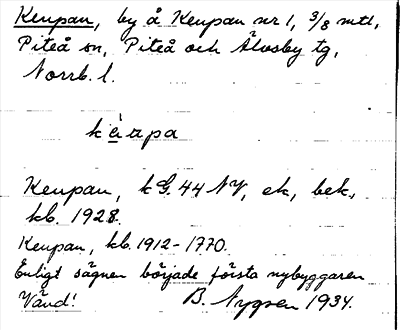 Keupan, by å Keupan nr 1, 3/8 mtl,
Piteå sn, Piteå och Älvsby tg,
Norrb. l.
Keupan, k G. 44 NV, ek, bek,
kb. 1928.
Keupan, kb. 1912-1770.
Enligt sägnen började första nybyggaren
Vänd! B. Nygren 1934.